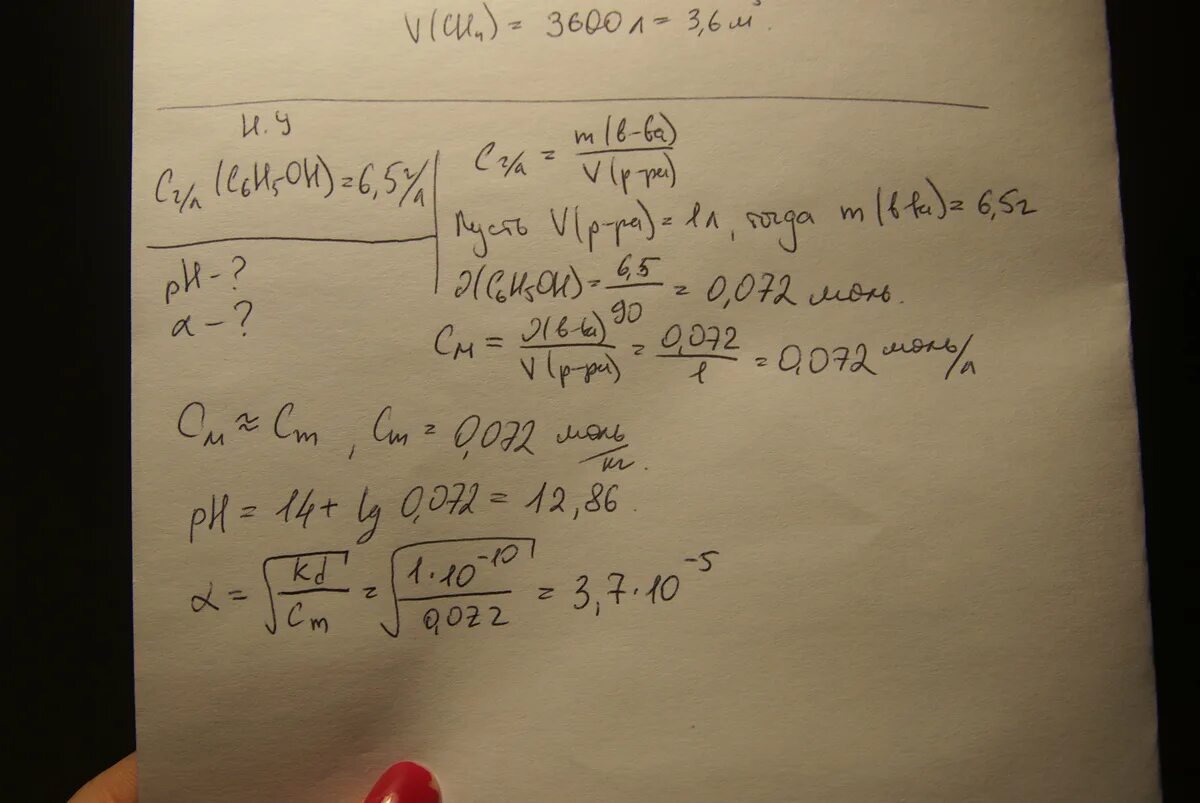 V(CH₄) = 3600 л = 3,6 м³.
Н.У
C г/л (C₆H₅OH) = 6,5 г/л
pH - ?
α - ?
C г/л = m(в-ва) / V(р-ра)
Пусть V(р-ра) = 1 л, тогда m(в-ва) = 6,5 г
ν(C₆H₅OH) = 6,5 / 90 = 0,072 моль.
Cм = ν(в-ва) / V(р-ра) = 0,072 / 1 = 0,072 моль/л
Cм ≈ Cm, Cm = 0,072 моль/кг.
pH = 14 + lg 0,072 = 12,86.
α = √(kd / Cm) = √(1·10⁻¹⁰ / 0,072) = 3,7·10⁻⁵